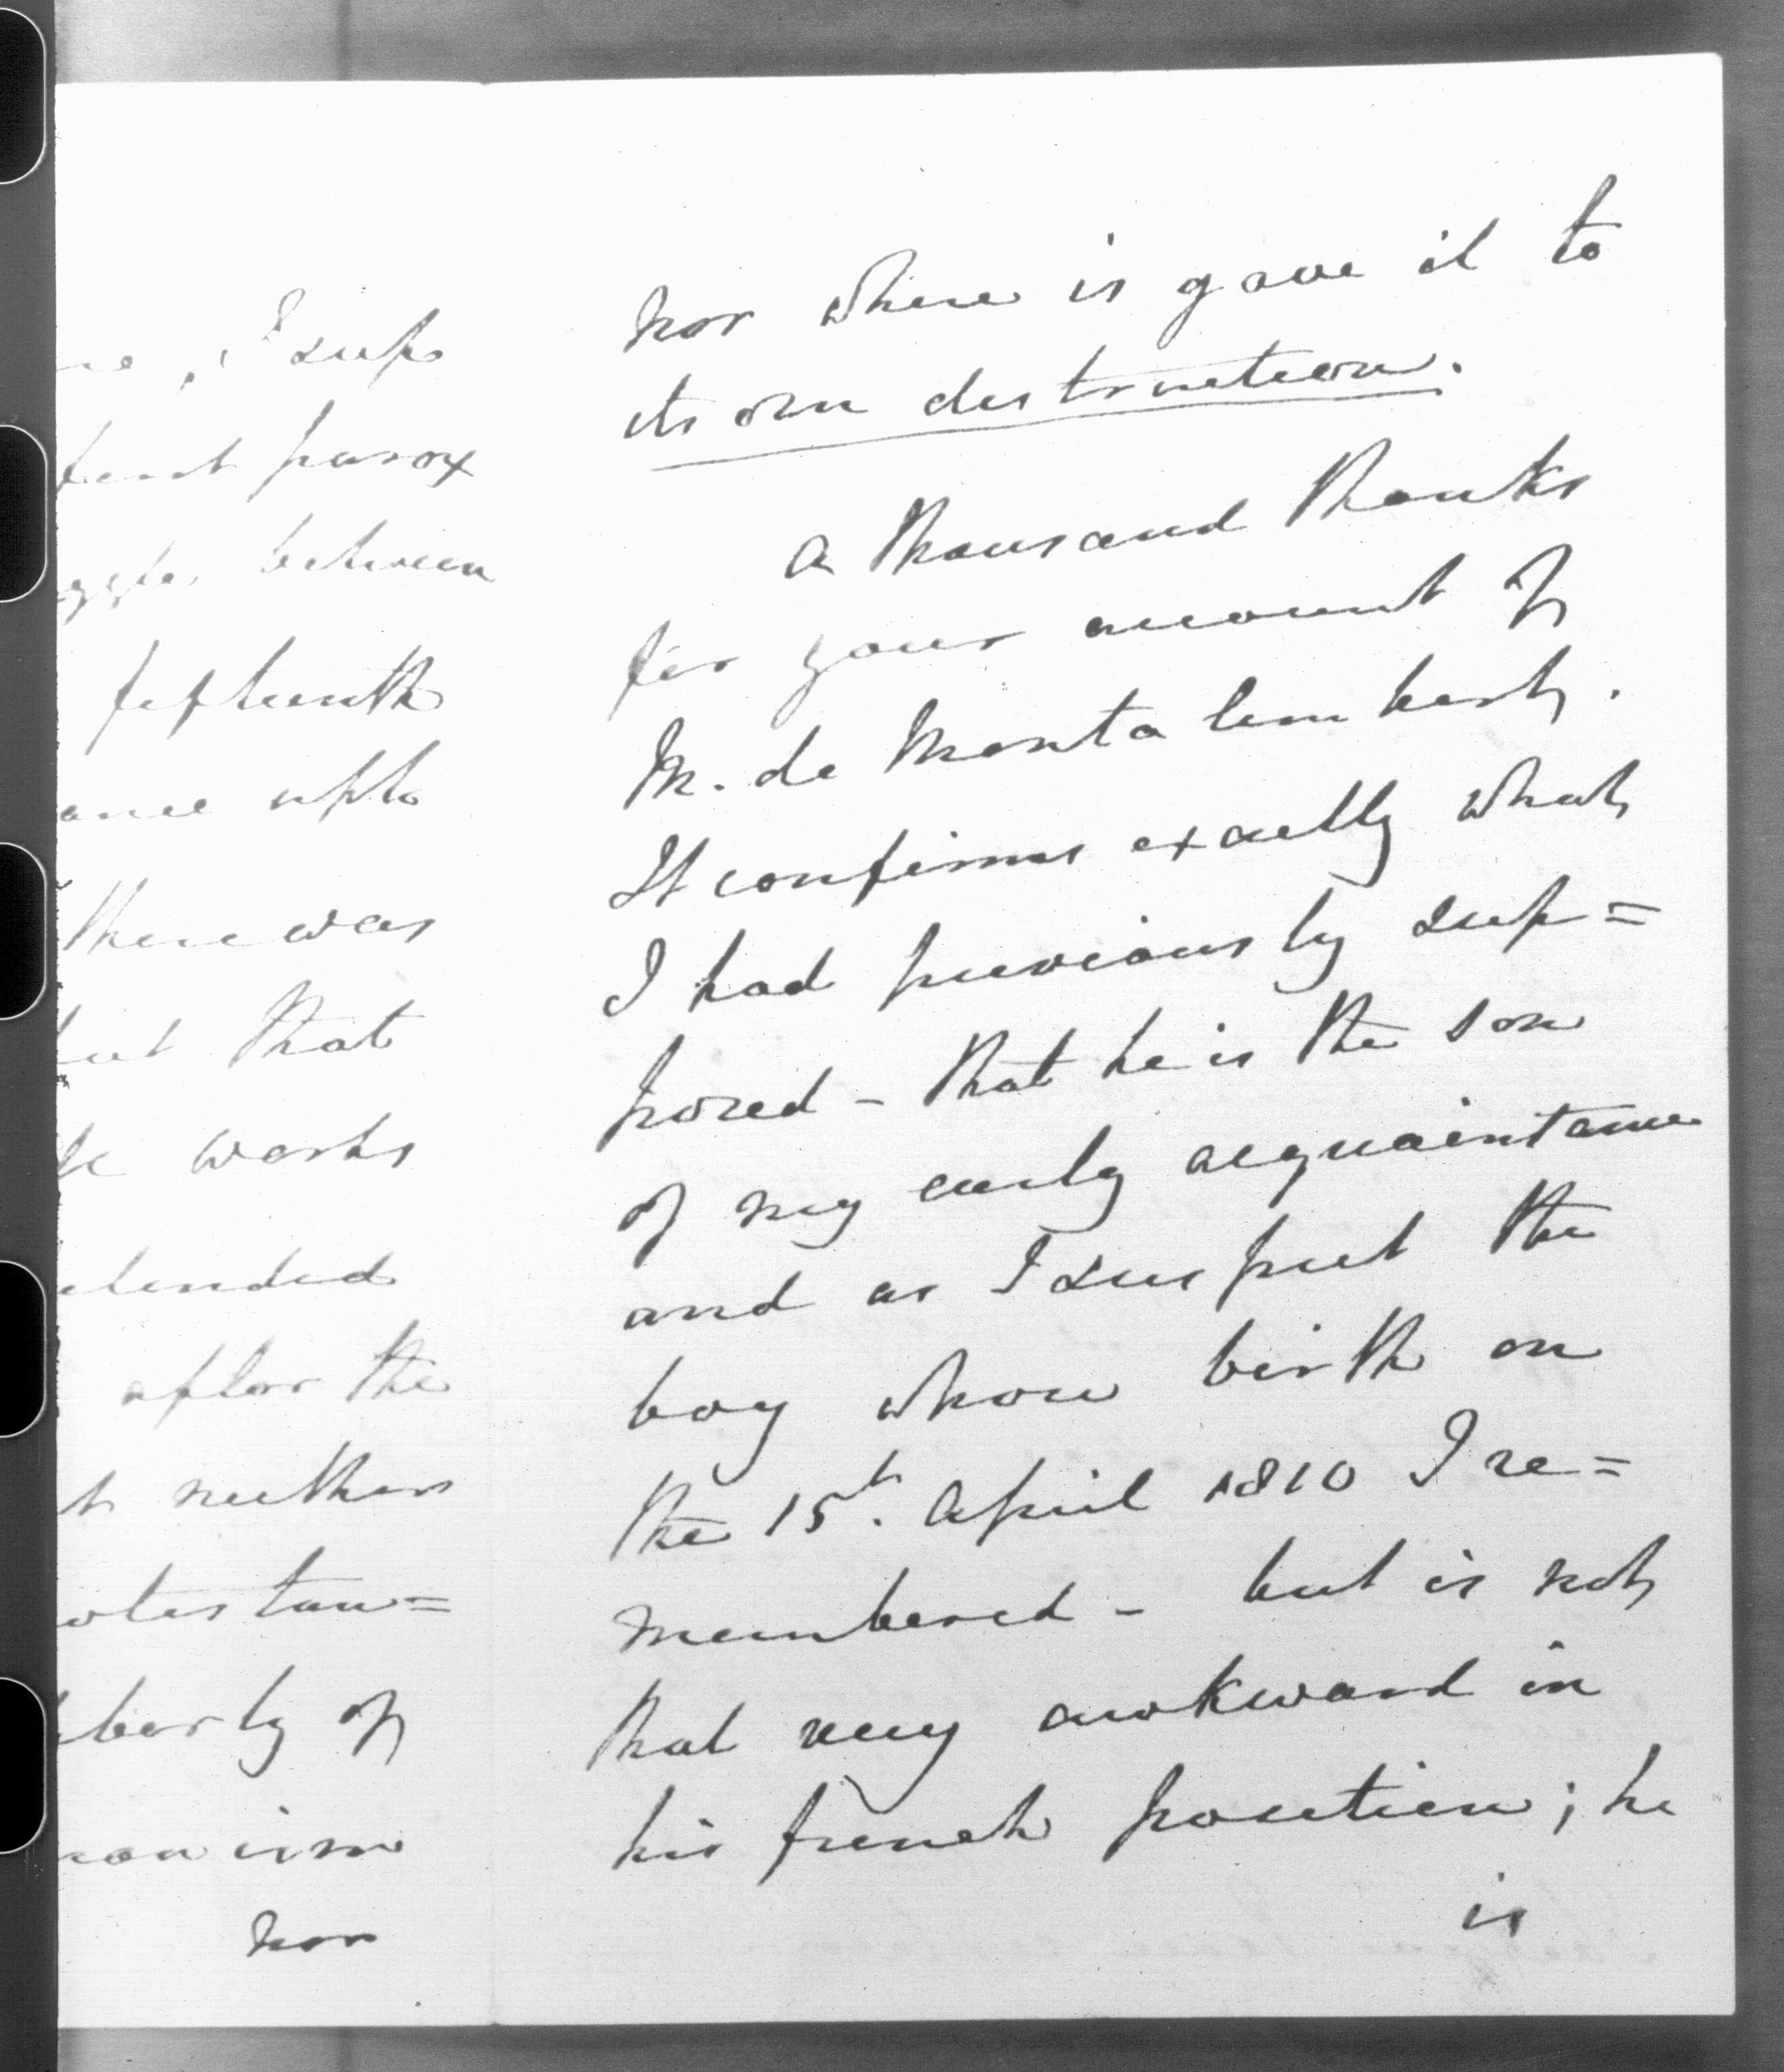 ne, I sup
tent parox
ggle, between
fifteenth
ance upto
there was
but that
works
etended
after the
neither
otestan=
berty of
nanism
nor
nor where is gave it to
its own destruction.
A thousand thanks
for your account of
M. de Montalembert.
It confirms exactly what
I had previously sup=
posed - that he is the son
of my early acquaintance
and as I suspect the
boy whose birth on
the 15th. April 1810 I re=
membered - but is not
that very awkward in
his french position; he
is